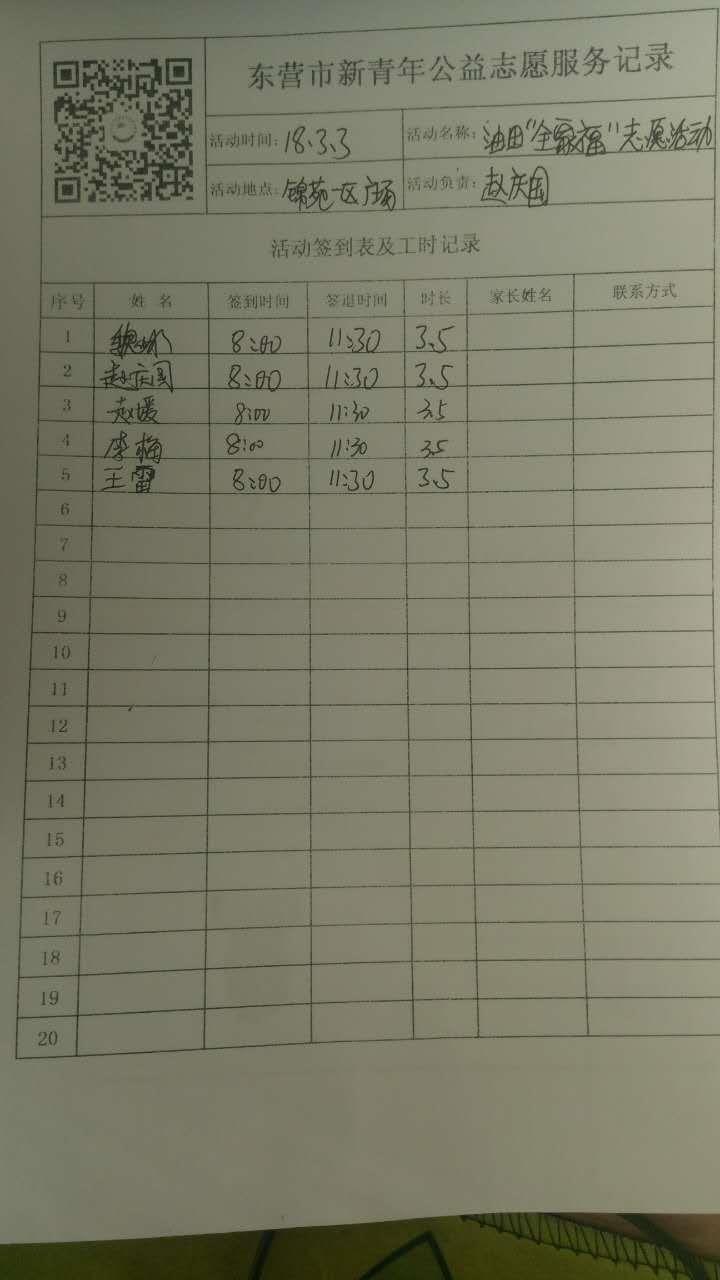 东营市新青年公益志愿服务记录
活动时间: 18.3.3 活动名称: 油田"全家福"志愿活动
活动地点: 锦苑一区广场 活动负责: 赵庆国
活动签到表及工时记录
序号 姓 名 签到时间 签退时间 时长 家长姓名 联系方式
1 8:00 11:30 3.5
2 赵庆国 8:00 11:30 3.5
3 赵媛 8:00 11:30 3.5
4 李梅 8:00 11:30 3.5
5 王雷 8:00 11:30 3.5
6
7
8
9
10
11
12
13
14
15
16
17
18
19
20